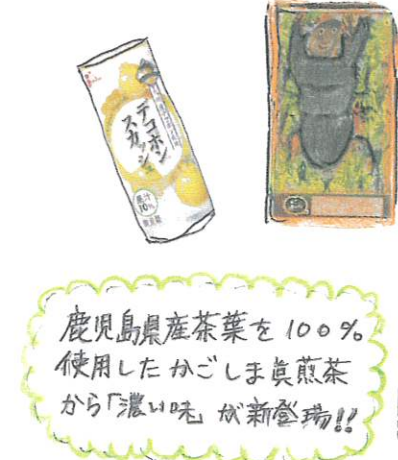 デコポン
スカッシュ
果汁
10%
鹿児島県産茶葉を100%
使用したかごしま眞煎茶
から「濃い味」が新登場!!